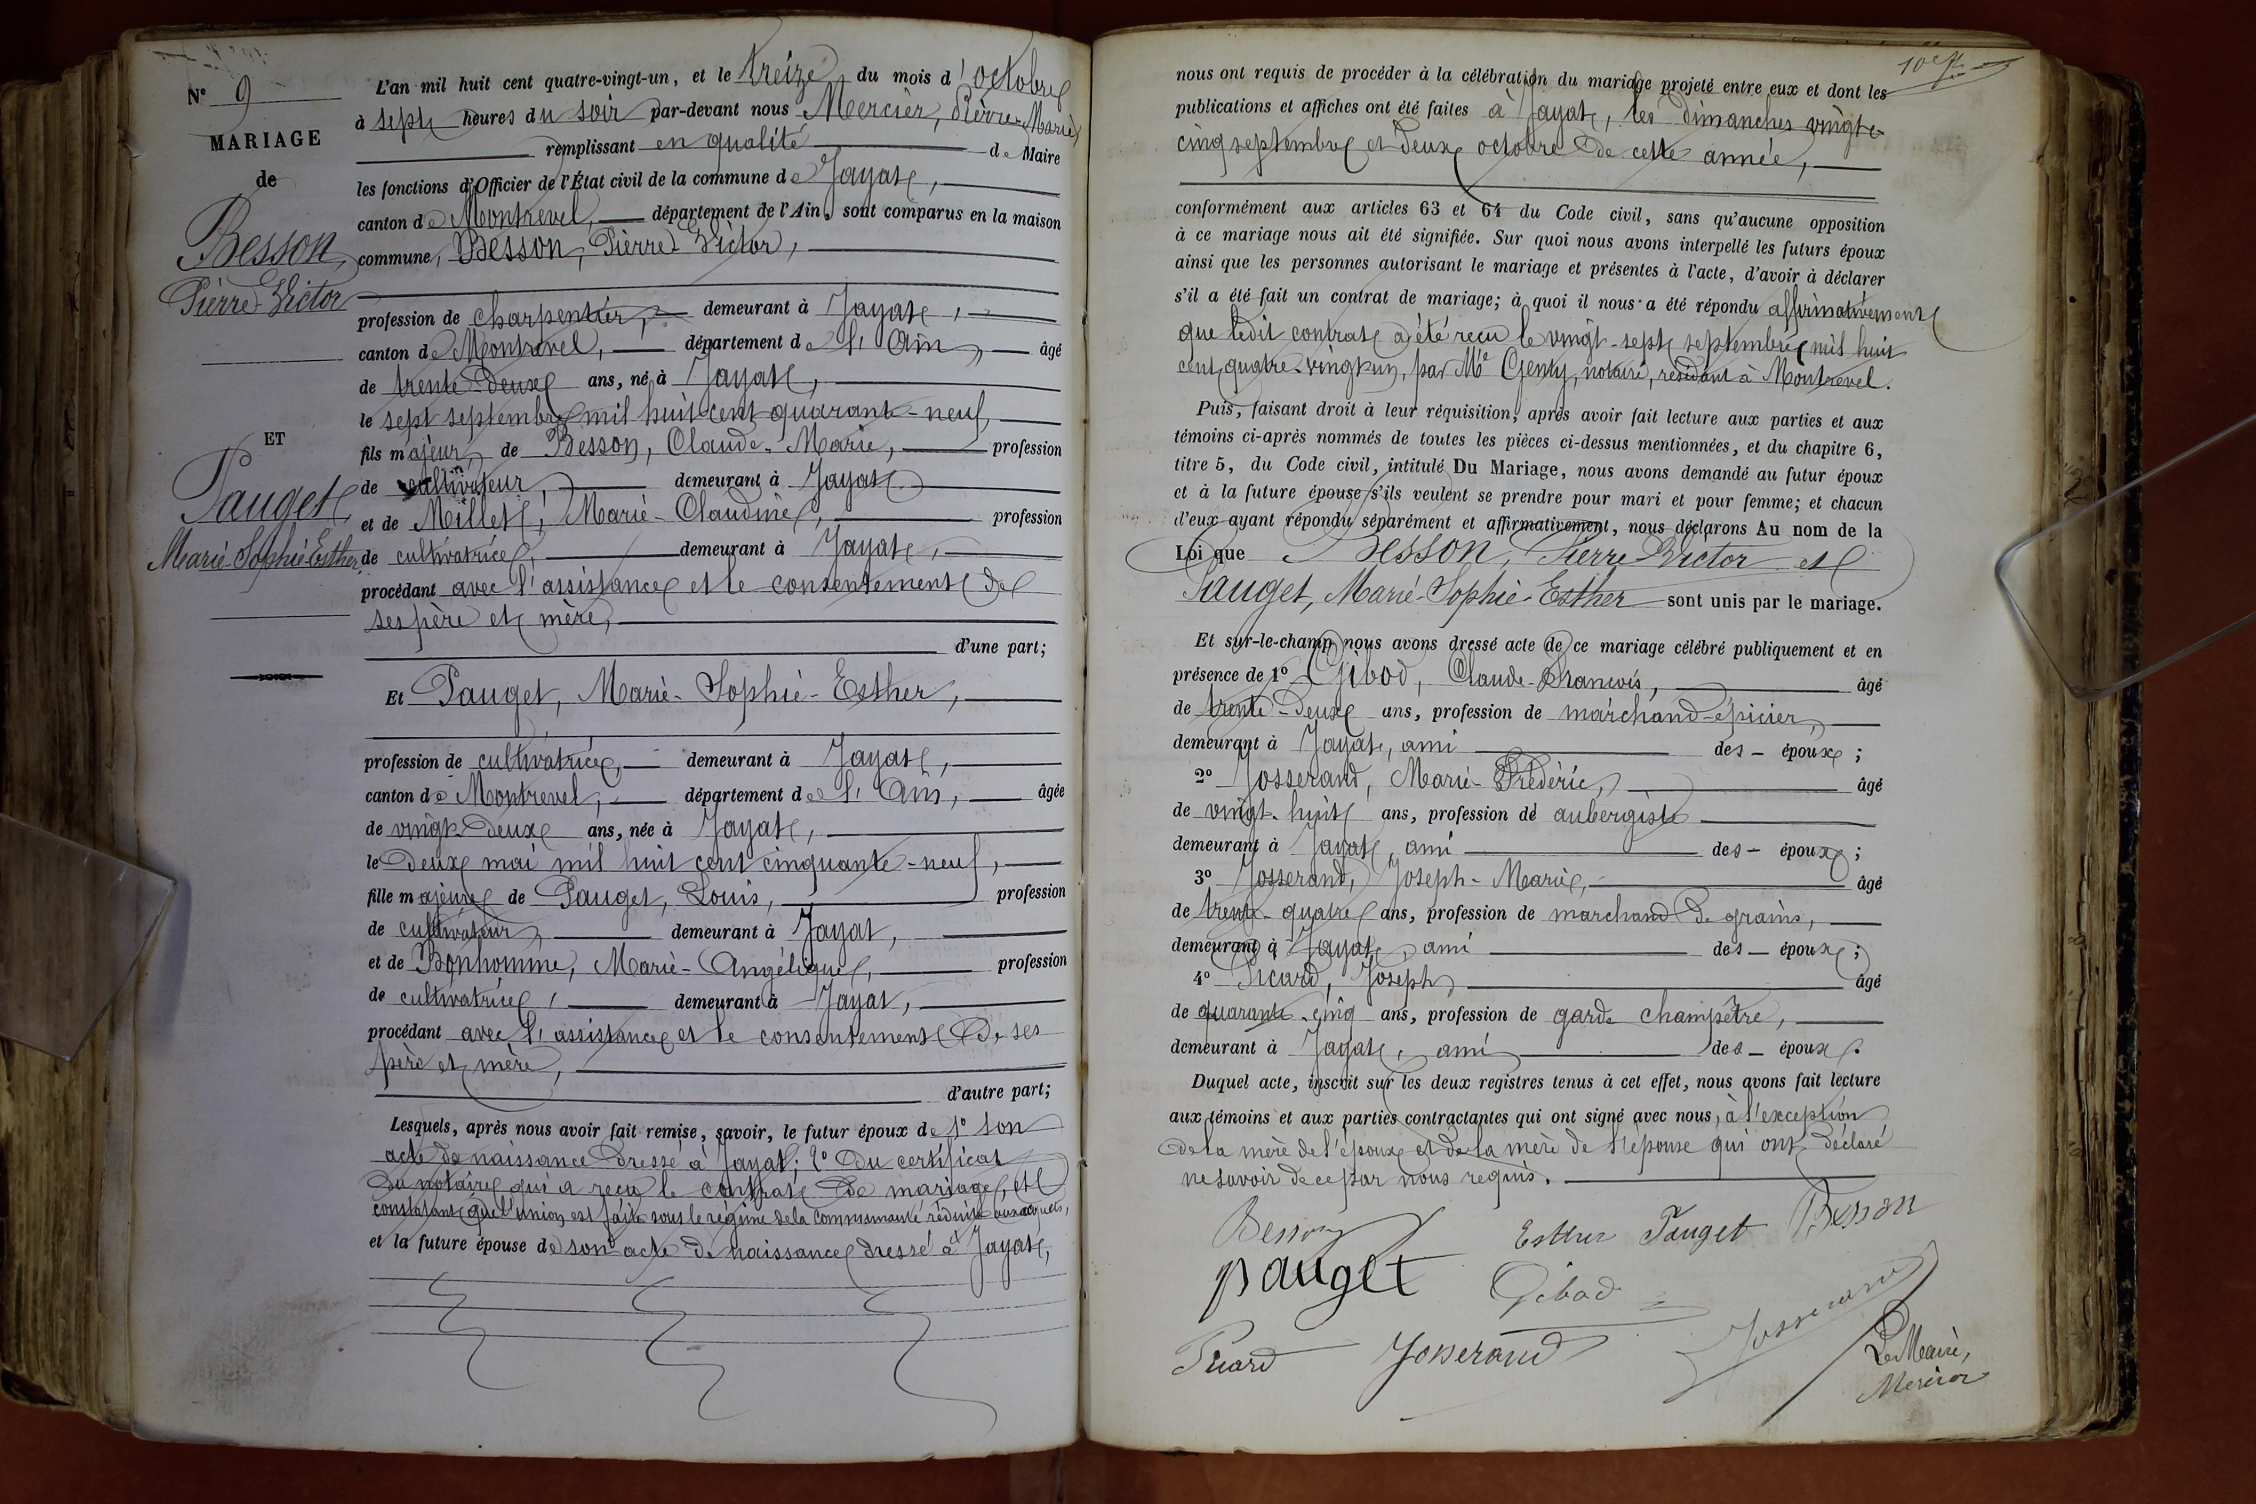 N° 9
MARIAGE
de
Besson,
Pierre Victor
ET
Pauget,
Marie-Sophie-Esther
L'an mil huit cent quatre-vingt-un, et le treize du mois d'octobre
à sept heures du soir par-devant nous Mercier, Pierre-Marie
remplissant en qualité de Maire
les fonctions d'Officier de l'État civil de la commune de Jayat,
canton de Montrevel, département de l'Ain, sont comparus en la maison
commune, Besson, Pierre Victor,
profession de charpentier, demeurant à Jayat,
canton de Montrevel, département de l'Ain, âgé
de trente-deux ans, né à Jayat,
le sept septembre mil huit cent quarante-neuf,
fils majeur, de Besson, Claude-Marie, profession
de cultivateur, demeurant à Jayat
et de Millet, Marie-Claudine, profession
de cultivatrice, demeurant à Jayat,
procédant avec l'assistance et le consentement de
ses père et mère,
d'une part;
Et Pauget, Marie-Sophie-Esther,
profession de cultivatrice, demeurant à Jayat,
canton de Montrevel, département de l'Ain, âgée
de vingt-deux ans, née à Jayat,
le deux mai mil huit cent cinquante-neuf,
fille majeure de Pauget, Louis, profession
de cultivateur, demeurant à Jayat,
et de Bonhomme, Marie-Angélique, profession
de cultivatrice, demeurant à Jayat,
procédant avec l'assistance et le consentement de ses
père et mère,
d'autre part;
Lesquels, après nous avoir fait remise, savoir, le futur époux de 1° son
acte de naissance dressé à Jayat; 2° du certificat
du notaire qui a reçu le contrat de mariage, et
constatant que l'union est faite sous le régime de la communauté réduite aux acquets,
et la future épouse de son acte de naissance dressé à Jayat,
nous ont requis de procéder à la célébration du mariage projeté entre eux et dont les
publications et affiches ont été faites à Jayat, les dimanches vingt-
cinq septembre et deux octobre de cette année,
conformément aux articles 63 et 64 du Code civil, sans qu'aucune opposition
à ce mariage nous ait été signifiée. Sur quoi nous avons interpellé les futurs époux
ainsi que les personnes autorisant le mariage et présentes à l'acte, d'avoir à déclarer
s'il a été fait un contrat de mariage; à quoi il nous a été répondu affirmativement
que ledit contrat a été reçu le vingt-sept septembre mil huit
cent quatre-vingt-un, par Me Genty, notaire, résidant à Montrevel.
Puis, faisant droit à leur réquisition, après avoir fait lecture aux parties et aux
témoins ci-après nommés de toutes les pièces ci-dessus mentionnées, et du chapitre 6,
titre 5, du Code civil, intitulé Du Mariage, nous avons demandé au futur époux
et à la future épouse s'ils veulent se prendre pour mari et pour femme; et chacun
d'eux ayant répondu séparément et affirmativement, nous déclarons Au nom de la
Loi que Besson, Pierre Victor et
Pauget, Marie-Sophie-Esther sont unis par le mariage.
Et sur-le-champ nous avons dressé acte de ce mariage célébré publiquement et en
présence de 1° Gibod, Claude-François, âgé
de trente-deux ans, profession de marchand-épicier,
demeurant à Jayat, ami des époux;
2° Josserand, Marie-Frédéric, âgé
de vingt-huit ans, profession de aubergiste
demeurant à Jayat, ami des époux;
3° Josserand, Joseph-Marie, âgé
de trente-quatre ans, profession de marchand de grains,
demeurant à Jayat, ami des époux;
4° Picard, Joseph, âgé
de quarante-cinq ans, profession de garde champêtre,
demeurant à Jayat, ami des époux.
Duquel acte, inscrit sur les deux registres tenus à cet effet, nous avons fait lecture
aux témoins et aux parties contractantes qui ont signé avec nous, à l'exception
de la mère de l'époux et de la mère de l'épouse qui ont déclaré
ne savoir de ce par nous requis.
Besson Esther Pauget Besson
pauget Gibod
Picard Josserand Josserand
Le Maire,
Mercier